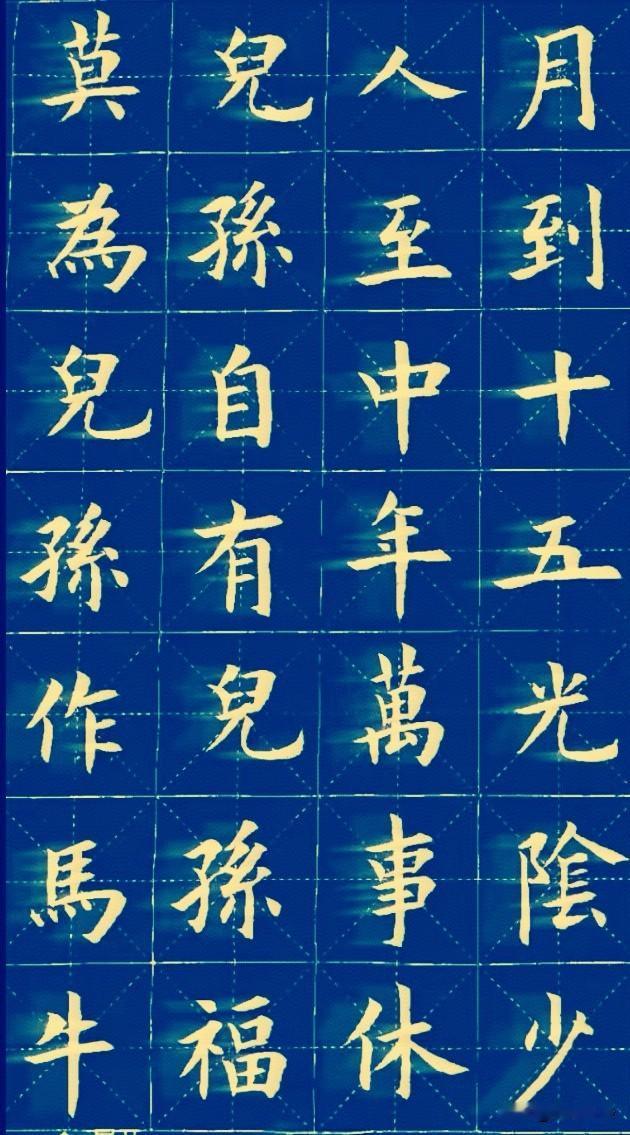 月到十五光陰少
人至中年萬事休
兒孫自有兒孫福
莫為兒孫作馬牛